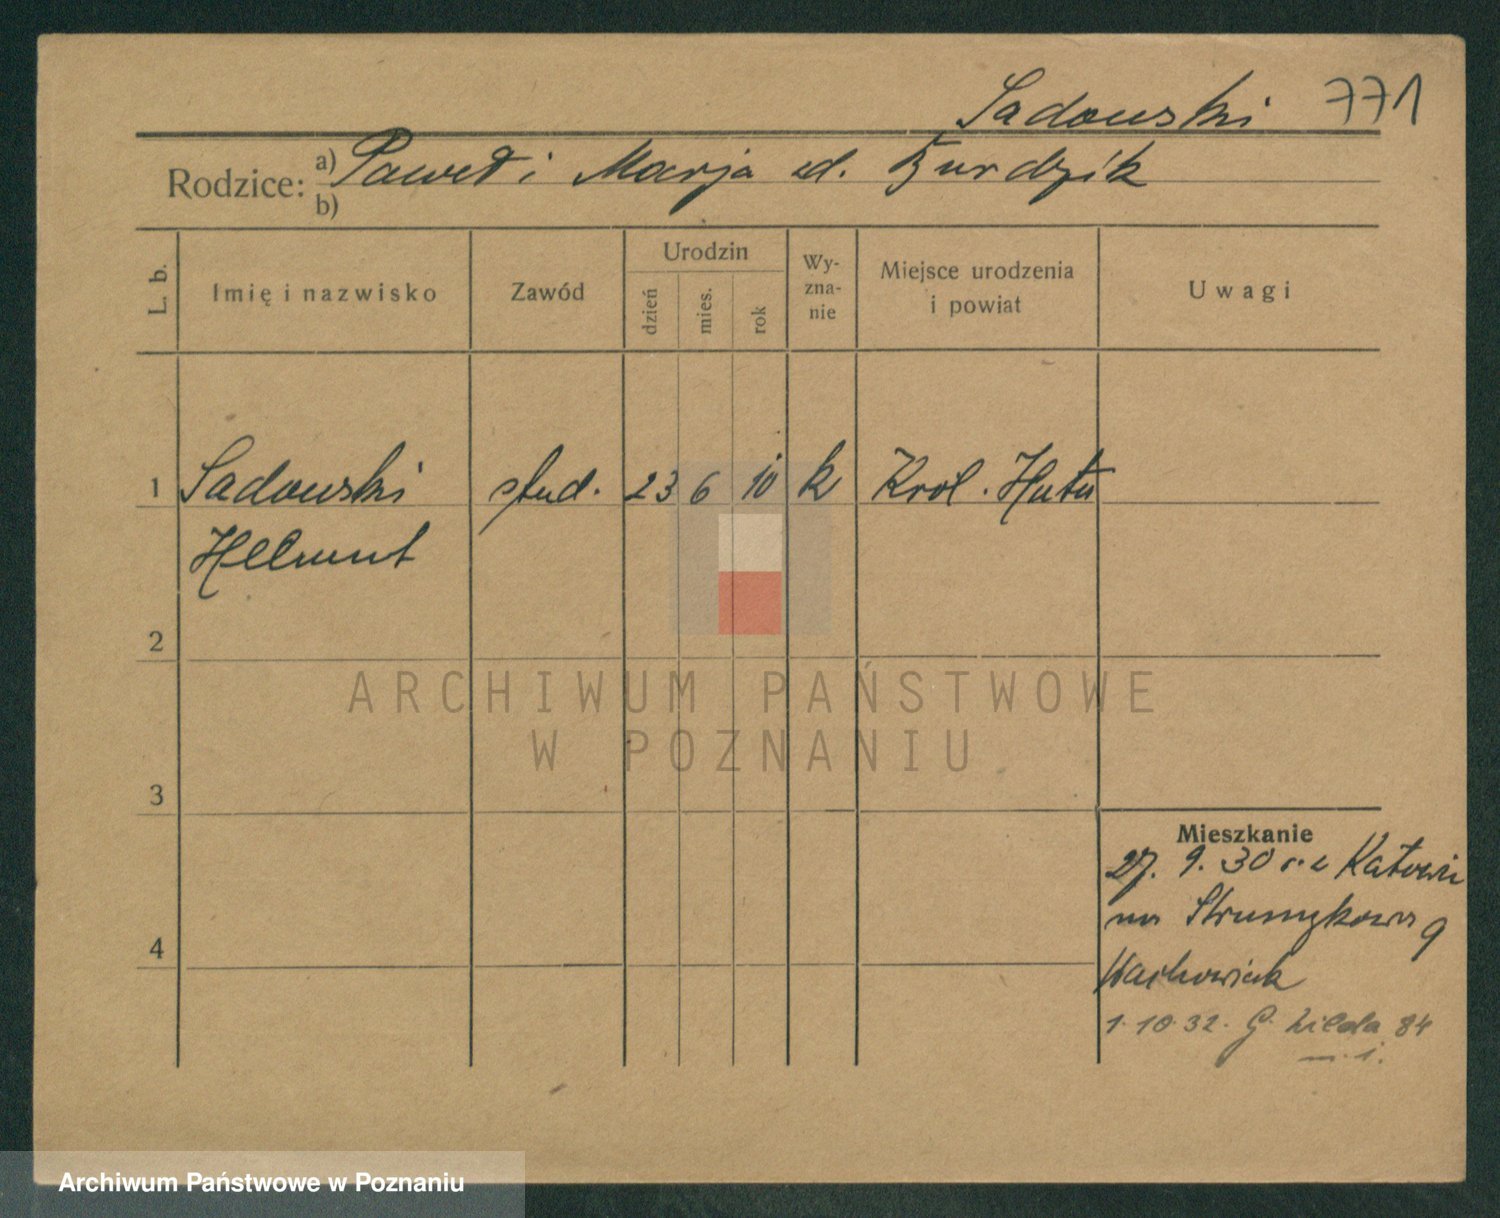 Sadowski 771
Rodzice: a) Paweł i Marja zd. Burdzik
b)
L. b.
Imię i nazwisko
Zawód
Urodzin
dzień
mies.
rok
Wy-
zna-
nie
Miejsce urodzenia
i powiat
Uwagi
1 Sadowski stud. 23 6 10 k Krol. Huta
Helmut
2
3
4
Mieszkanie
27. 9. 30 r. z Katowic
na Strumykowa 9
Wachowiak
1.10.32. G. Wilda 84
m. 1.
ARCHIWUM PAŃSTWOWE
W POZNANIU
Archiwum Państwowe w Poznaniu